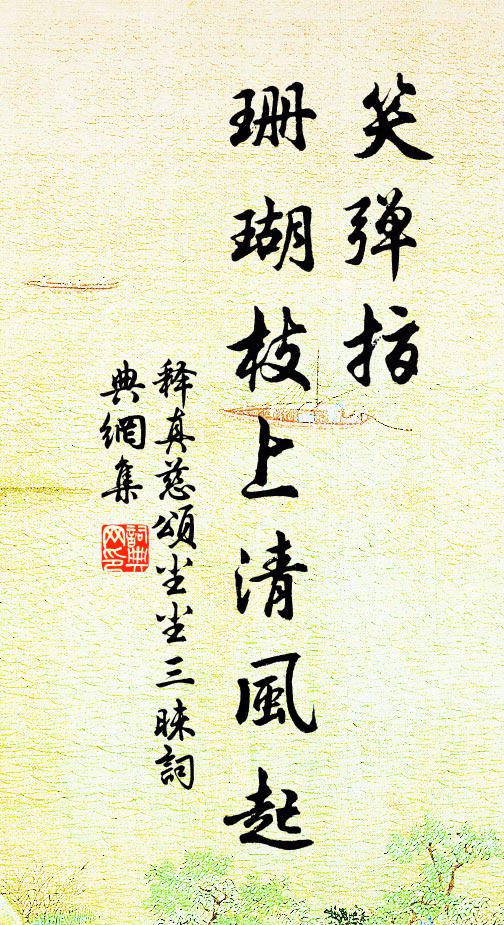 笑弹指
珊瑚枝上清風起
释真慈頌尘尘三昧詞
典網集
詞典
网印